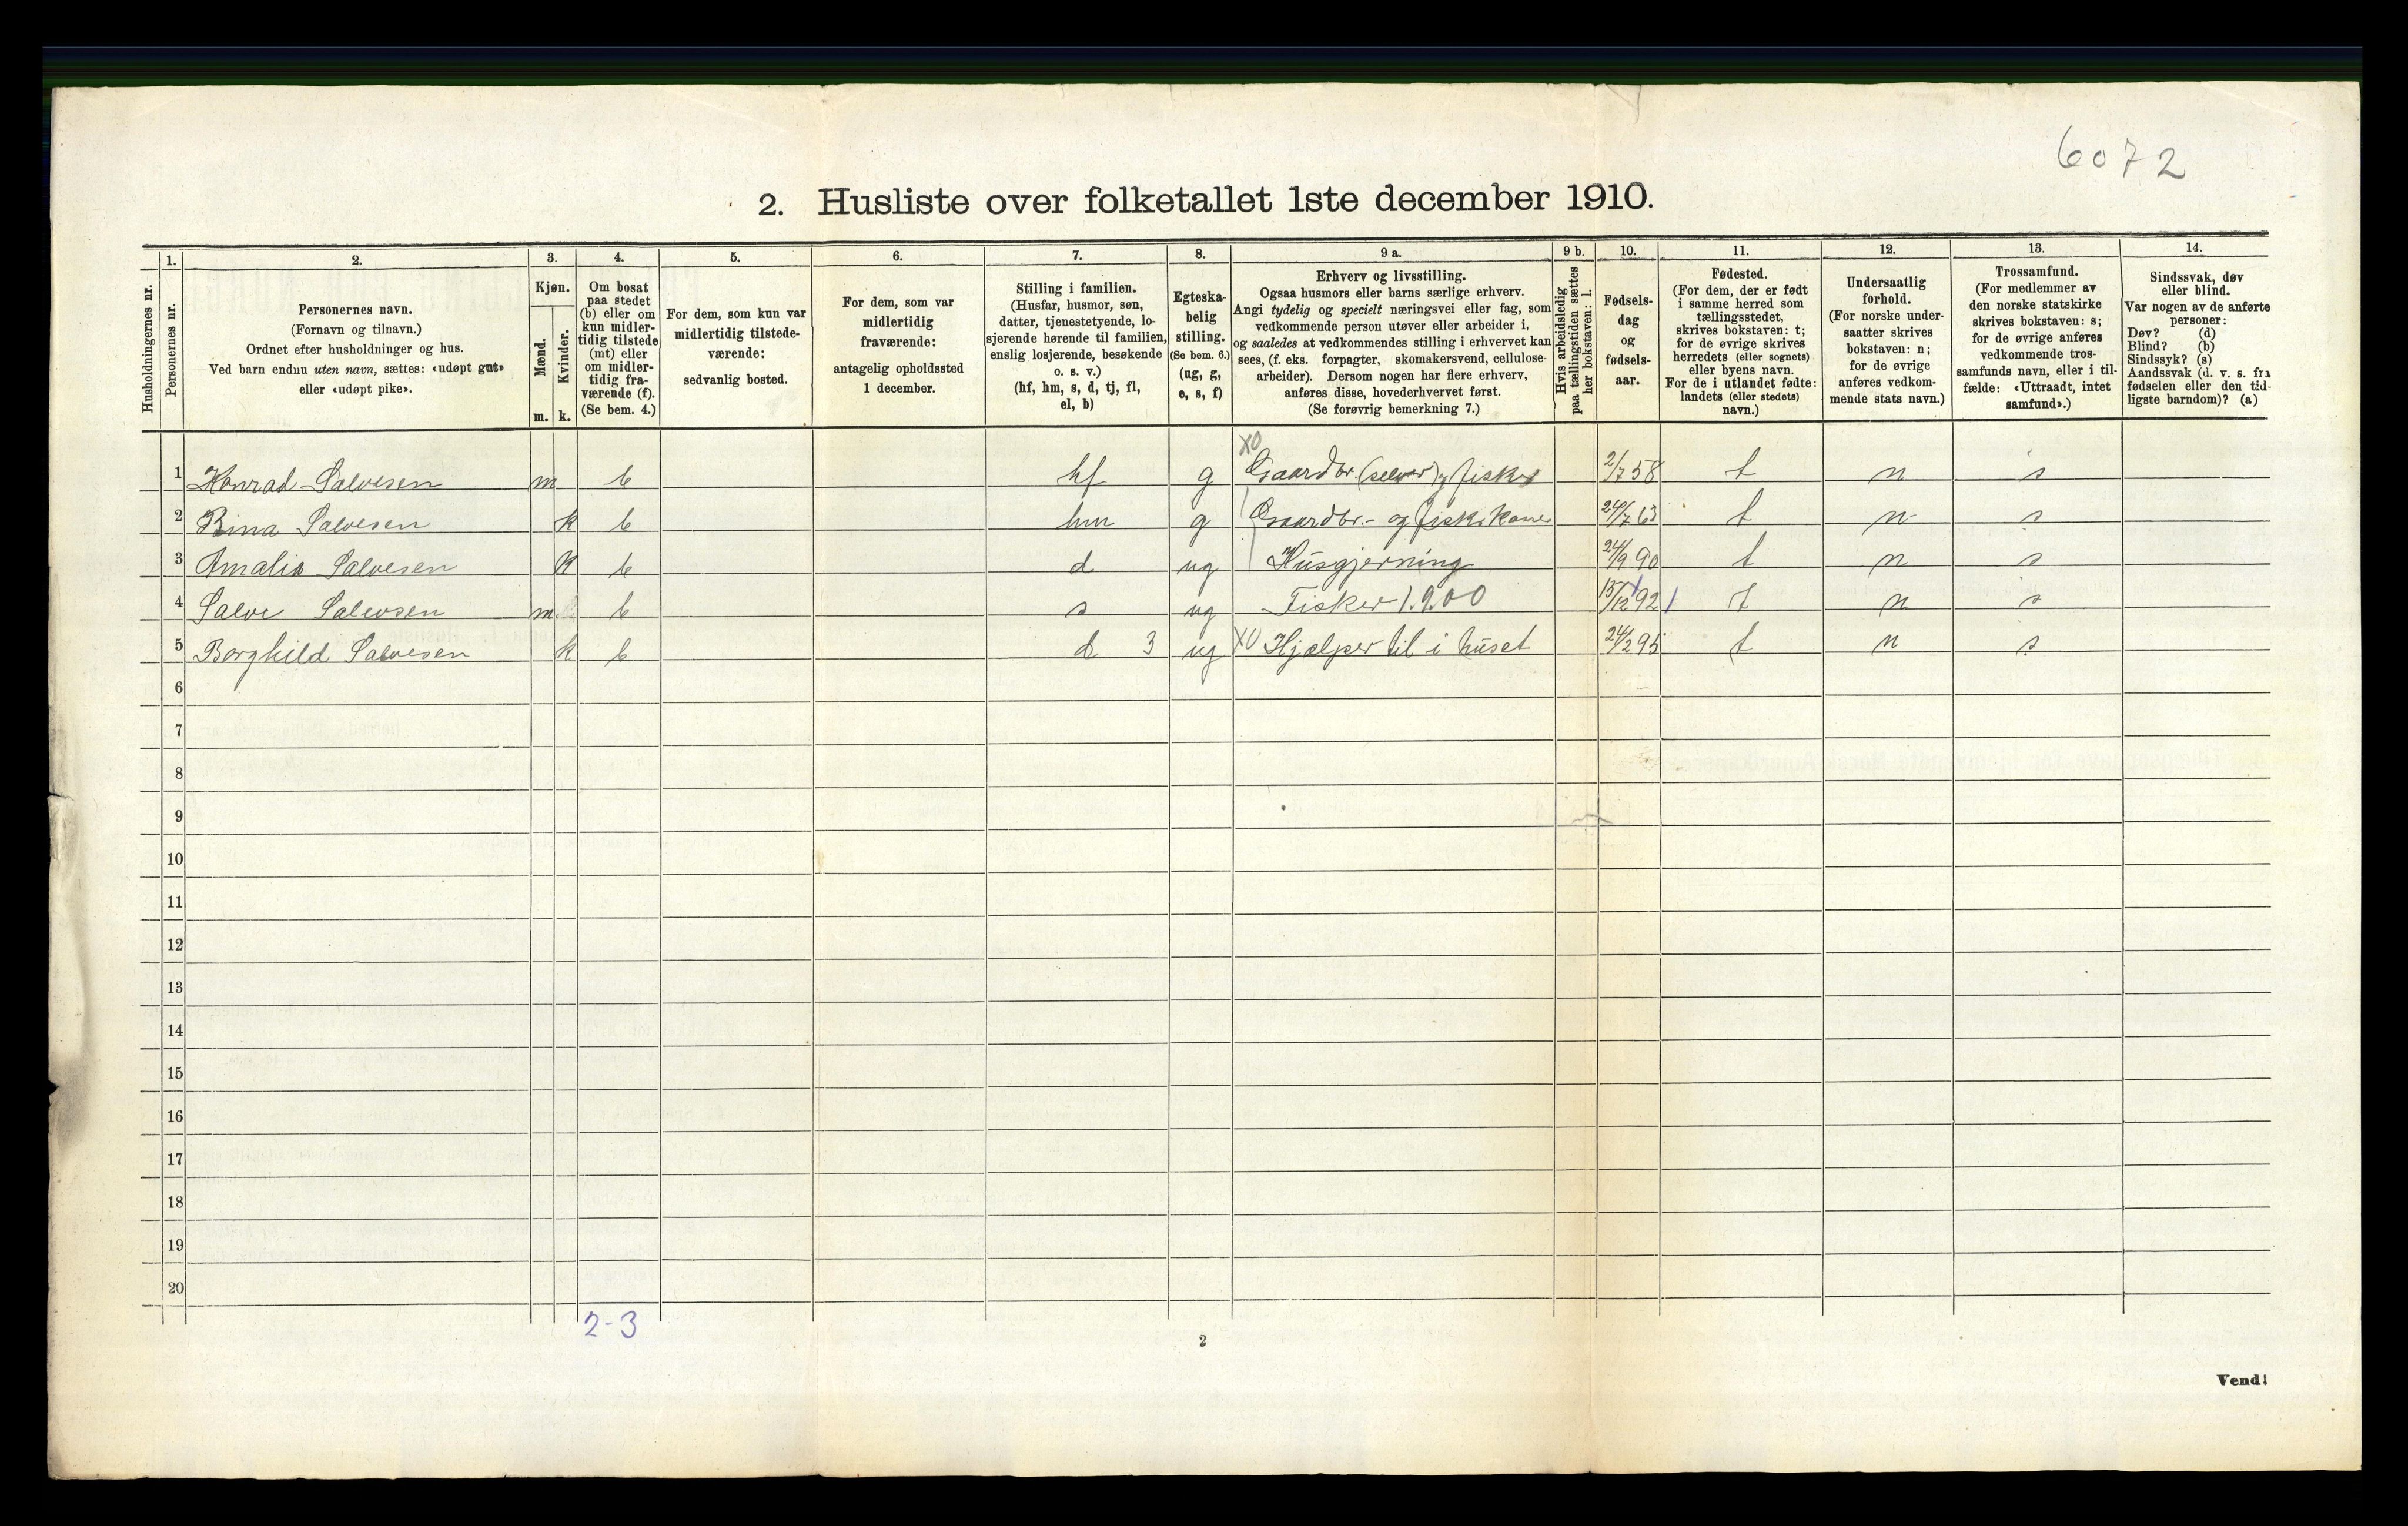 6072
2. Husliste over folketallet 1ste december 1910.
Husholdningernes nr.
1.
Personernes nr.
2.
Personernes navn.
(Fornavn og tilnavn.)
Ordnet efter husholdninger og hus.
Ved barn endnu uten navn, sættes: «udøpt gut»
eller «udøpt pike».
3.
Kjøn.
Mænd.
m.
Kvinder.
k.
4.
Om bosat
paa stedet
(b) eller om
kun midler-
tidig tilstede
(mt) eller
om midler-
tidig fra-
værende (f).
(Se bem. 4.)
5.
For dem, som kun var
midlertidig tilstede-
værende:
sedvanlig bosted.
6.
For dem, som var
midlertidig
fraværende:
antagelig opholdssted
1 december.
7.
Stilling i familien.
(Husfar, husmor, søn,
datter, tjenestetyende, lo-
sjerende hørende til familien,
enslig losjerende, besøkende
o. s. v.)
(hf, hm, s, d, tj, fl,
el, b)
8.
Egteska-
belig
stilling.
(Se bem. 6.)
(ug, g,
e, s, f)
9 a.
Erhverv og livsstilling.
Ogsaa husmors eller barns særlige erhverv.
Angi tydelig og specielt næringsvei eller fag, som
vedkommende person utøver eller arbeider i,
og saaledes at vedkommendes stilling i erhvervet kan
sees, (f. eks. forpagter, skomakersvend, cellulose-
arbeider). Dersom nogen har flere erhverv,
anføres disse, hovederhvervet først.
(Se forøvrig bemerkning 7.)
9 b.
Hvis arbeidsledig
paa tællingstiden sættes
her bokstaven: l.
10.
Fødsels-
dag
og
fødsels-
aar.
11.
Fødested.
(For dem, der er født
i samme herred som
tællingsstedet,
skrives bokstaven: t;
for de øvrige skrives
herredets (eller sognets)
eller byens navn.
For de i utlandet fødte:
landets (eller stedets)
navn.)
12.
Undersaatlig
forhold.
(For norske under-
saatter skrives
bokstaven: n;
for de øvrige
anføres vedkom-
mende stats navn.)
13.
Trossamfund.
(For medlemmer av
den norske statskirke
skrives bokstaven: s;
for de øvrige anføres
vedkommende tros-
samfunds navn, eller i til-
fælde: «Uttraadt, intet
samfund».)
14.
Sindssvak, døv
eller blind.
Var nogen av de anførte
personer:
Døv? (d)
Blind? (b)
Sindssyk? (s)
Aandssvak (d. v. s. fra
fødselen eller den tid-
ligste barndom)? (a)
1 Konrad Salvesen m b hf g X0 Gaardbr. (selveier) og fisker 2/7 58 t n s
2 Bina Salvesen k b hm g Gaardbr.- og fisk.kone 24/7 63 t n s
3 Amalia Salvesen k b d ug Husgjerning 24/9 90 t n s
4 Salve Salvesen m b s ug Fisker 1.9.00 15/12 92 t n s
5 Borghild Salvesen k b d 3 ug X0 Hjælper til i huset 24/2 95 t n s
6
7
8
9
10
11
12
13
14
15
16
17
18
19
20
2-3
2
Vend!